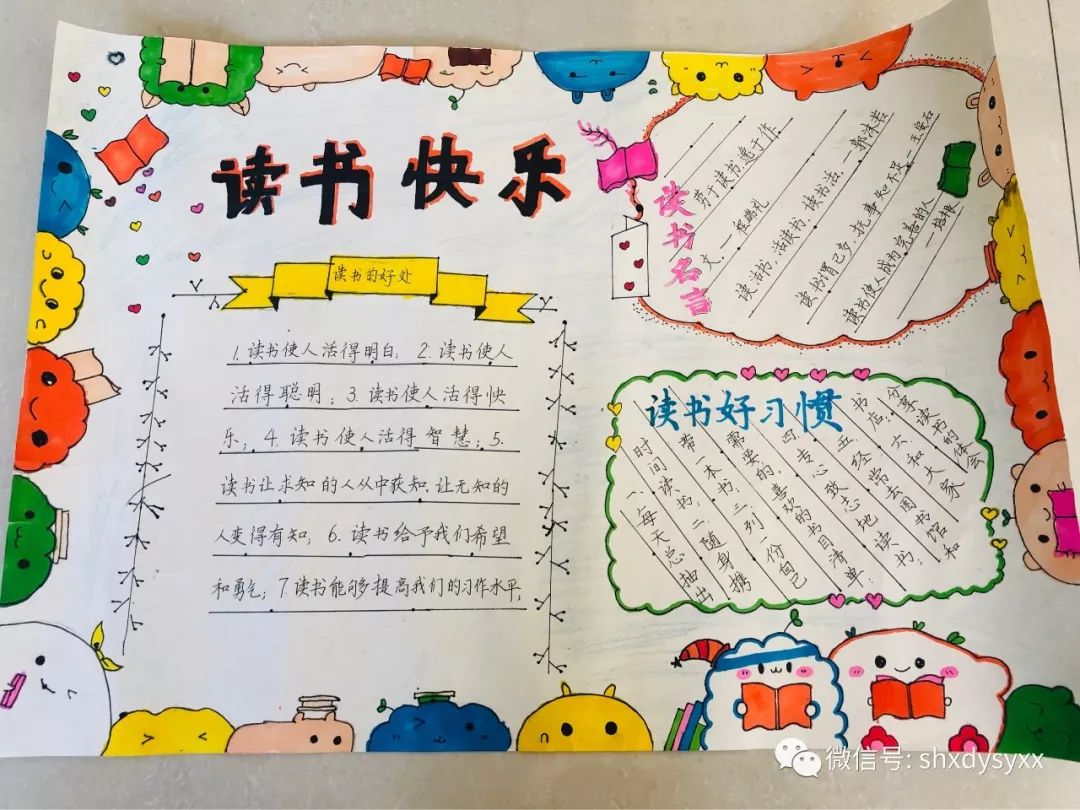 读书快乐
读书的好处
1.读书使人活得明白；2.读书使人
活得聪明；3.读书使人活得快
乐；4.读书使人活得智慧；5.
读书让求知的人从中获知,让无知的
人变得有知；6.读书给予我们希望
和勇气；7.读书能够提高我们的习作水平；
读书名言
劳于读书,逸于作
文。——程端礼
读活书,活读书,读书活。——郭沫若
读书谓已多,抚事知不足。——王安石
读书使人成为完善的人
——培根
读书好习惯
一、每天总抽出
时间读书；二、随身携
带一本书；三、列一份自己
需要的,喜欢的书目清单；
四、专心致志地读书；
五、经常去图书馆和
书店；六、和大家
分享读书的体会
微信号: shxdysyxx